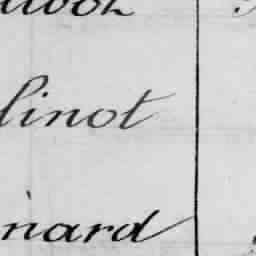 linot
nard